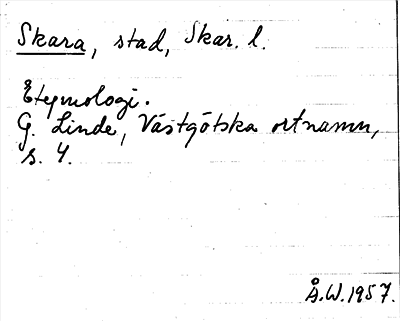 Skara, stad, Skar. l.
Etymologi.
G. Linde, Västgötska ortnamn,
s. 4.
Å.W.1957.